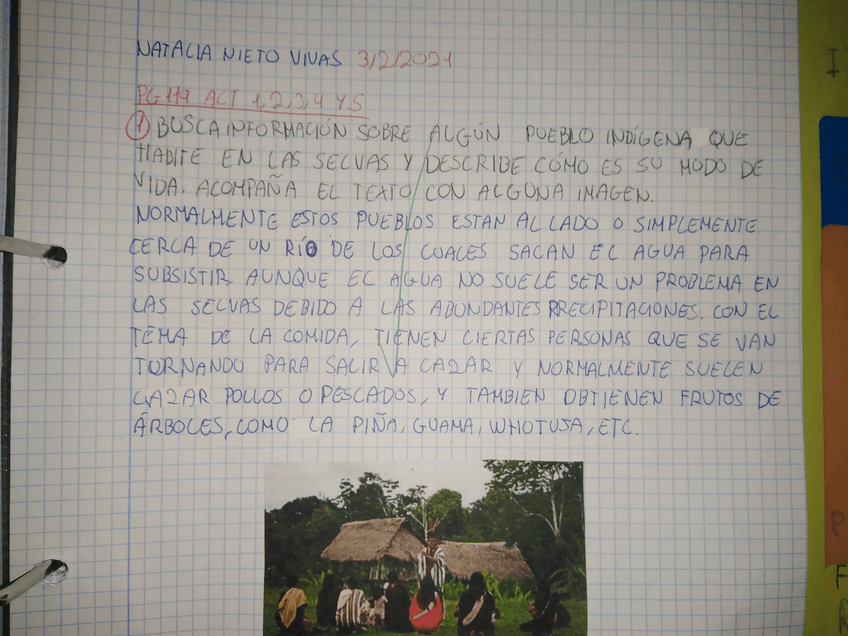 NATALIA NIETO VIVAS 3/2/2021
PG 119 ACT 1,2,3,4 Y 5
1 BUSCA INFORMACIÓN SOBRE ALGÚN PUEBLO INDÍGENA QUE
HABITE EN LAS SELVAS Y DESCRIBE CÓMO ES SU MODO DE
VIDA. ACOMPAÑA EL TEXTO CON ALGUNA IMAGEN.
NORMALMENTE ESTOS PUEBLOS ESTAN AL LADO O SIMPLEMENTE
CERCA DE UN RÍO DE LOS CUALES SACAN EL AGUA PARA
SUBSISTIR, AUNQUE EL AGUA NO SUELE SER UN PROBLEMA EN
LAS SELVAS DEBIDO A LAS ABUNDANTES PRECIPITACIONES. CON EL
TEMA DE LA COMIDA, TIENEN CIERTAS PERSONAS QUE SE VAN
TURNANDO PARA SALIR A CAZAR Y NORMALMENTE SUELEN
CAZAR POLLOS O PESCADOS, Y TAMBIEN OBTIENEN FRUTOS DE
ÁRBOLES, COMO LA PIÑA, GUAMA, WHOTUJA, ETC.
I
P
F